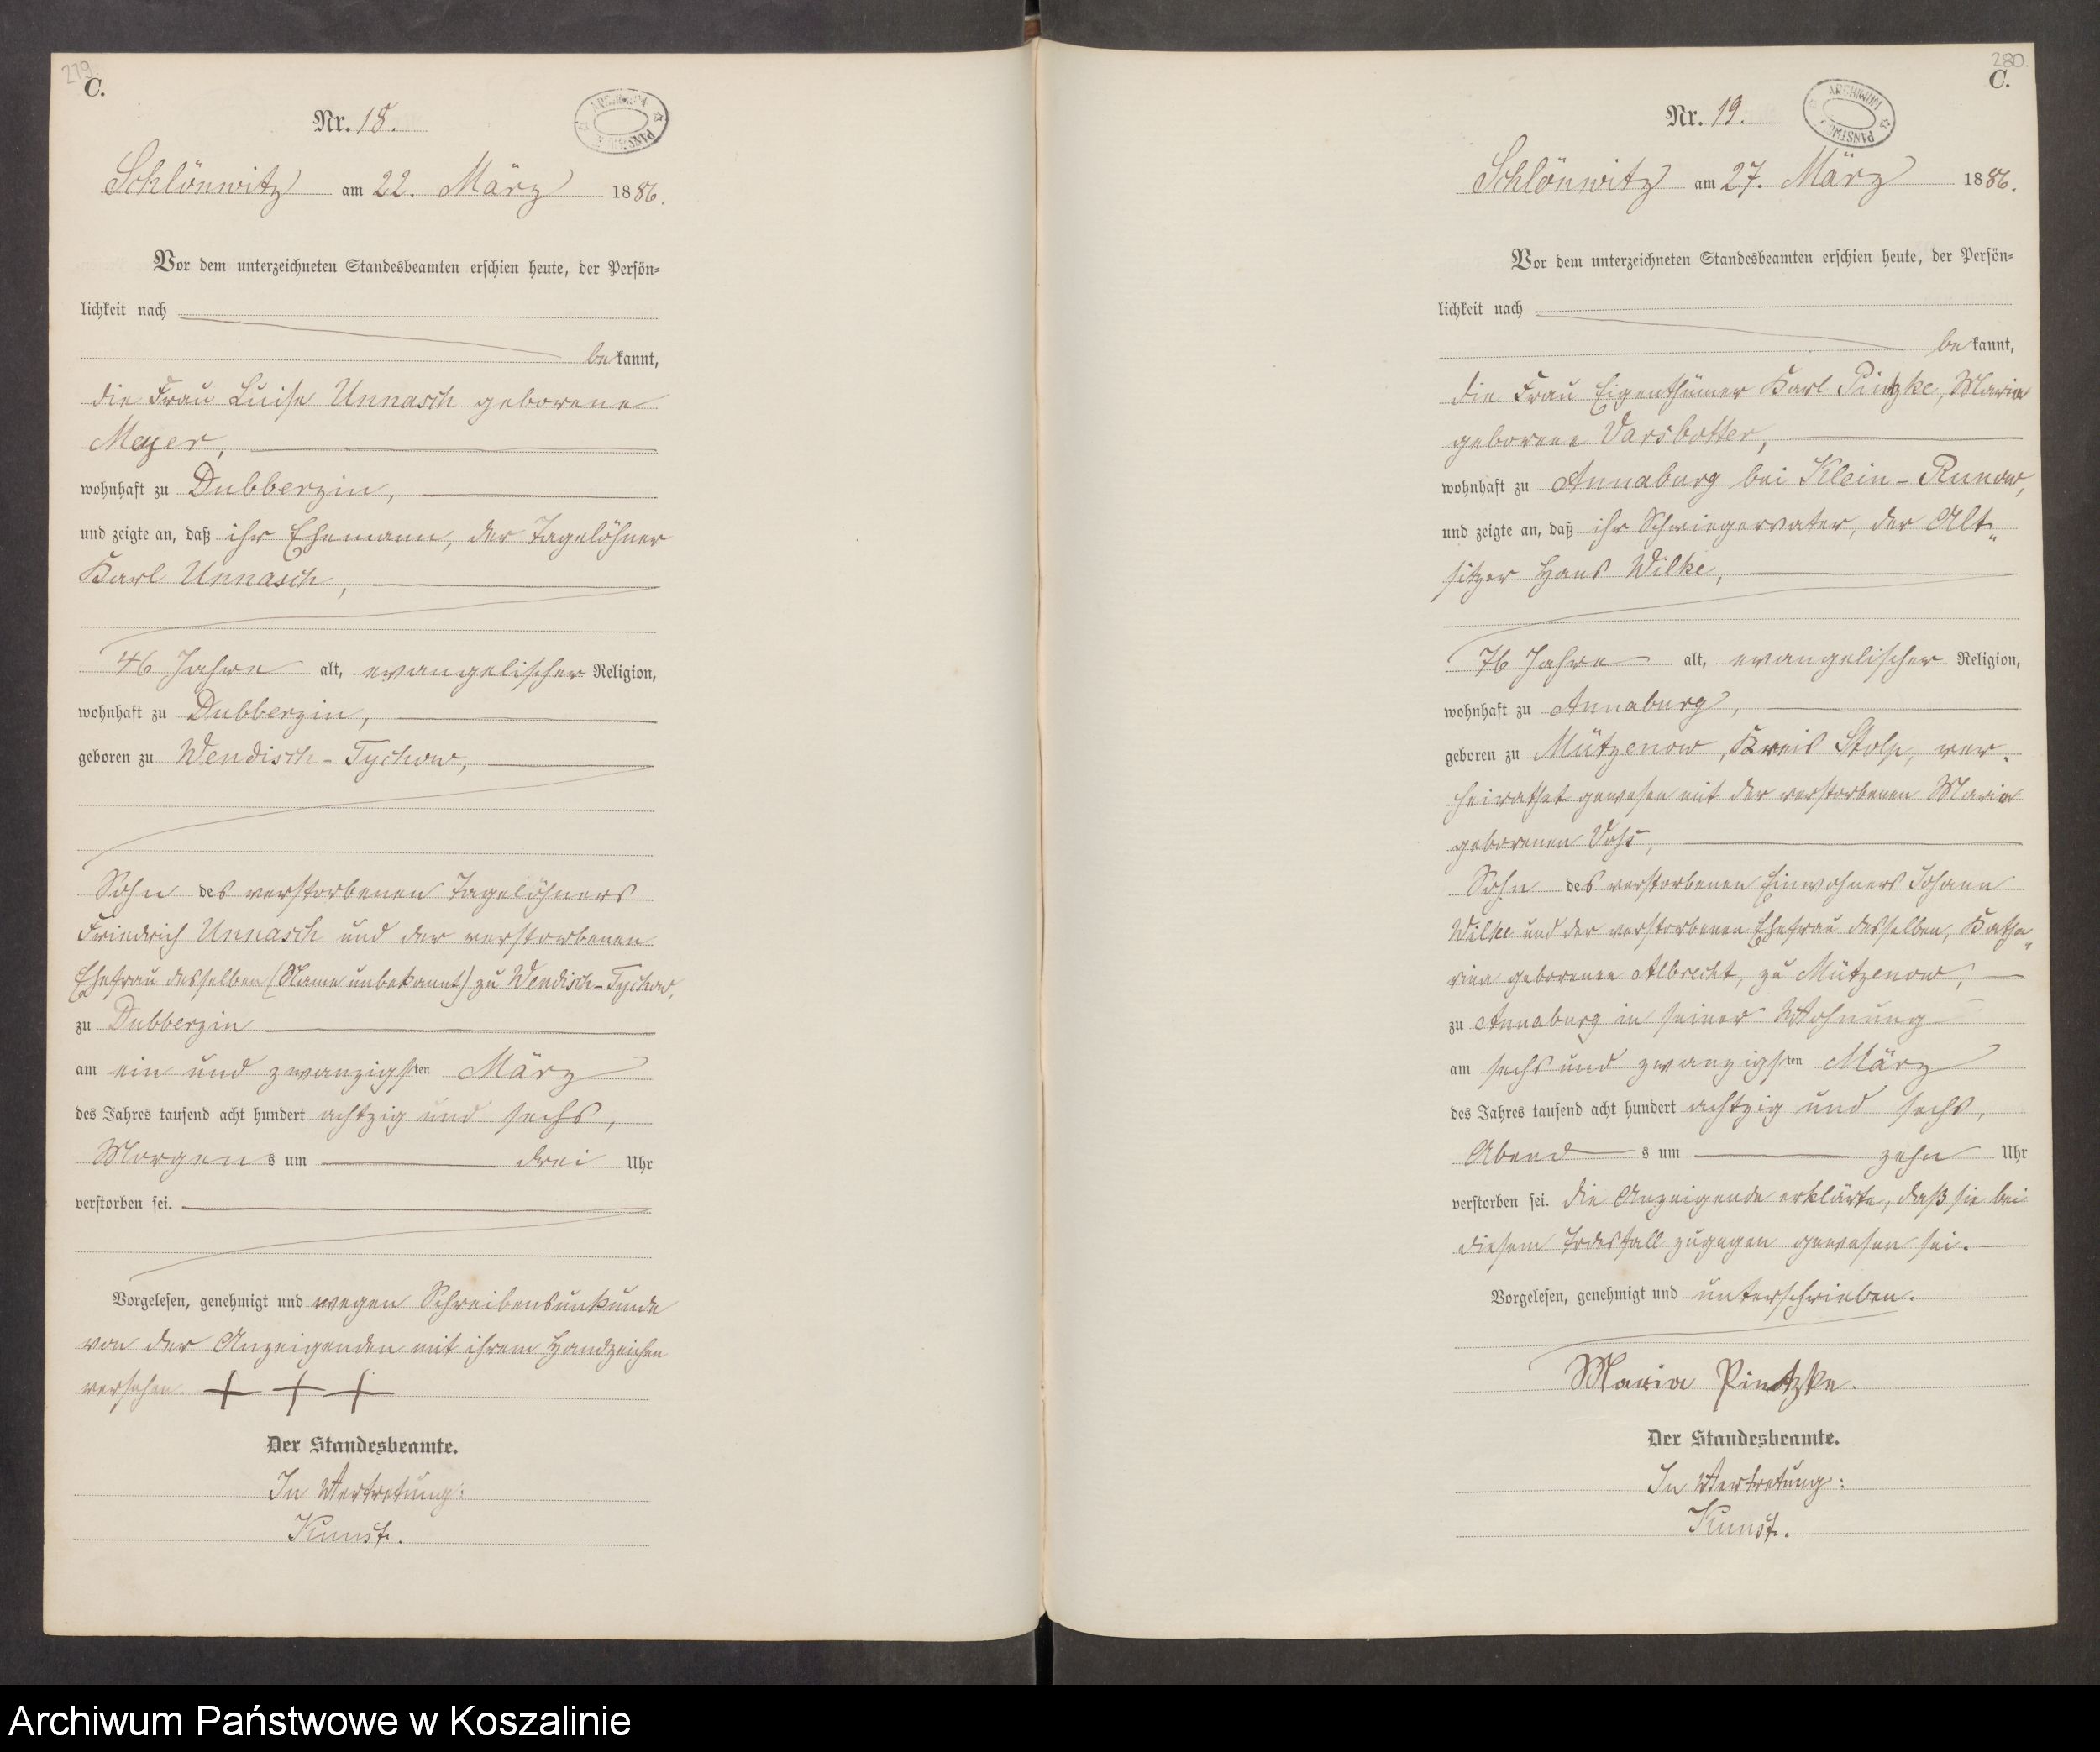 279.
C.
Nr. 18.
Schlönwitz am 22. März 1886.
Vor dem unterzeichneten Standesbeamten erschien heute, der Persön-
lichkeit nach
bekannt,
die Frau Luise Unnasch geborene
Meyer,
wohnhaft zu Dubberzin,
und zeigte an, daß ihr Ehemann, der Tagelöhner
Karl Unnasch,
46 Jahre alt, evangelischer Religion,
wohnhaft zu Dubberzin,
geboren zu Wendisch-Tychow,
Sohn des verstorbenen Tagelöhners
Friedrich Unnasch und der verstorbenen
Ehefrau desselben (Name unbekannt) zu Wendisch-Tychow,
zu Dubberzin
am ein und zwanzigsten März
des Jahres tausend acht hundert achtzig und sechs,
Morgens um drei Uhr
verstorben sei.
Vorgelesen, genehmigt und wegen Schreibensunkunde
von der Anzeigenden mit ihrem Handzeichen
versehen. + + +
Der Standesbeamte.
In Vertretung:
Kunst.
280.
C.
Nr. 19.
ARCHIWUM
Schlönwitz am 27. März 1886.
Vor dem unterzeichneten Standesbeamten erschien heute, der Persön-
lichkeit nach
bekannt,
die Frau Eigenthümer Karl Pintzke, Marie
geborene Varsbotter,
wohnhaft zu Annaburg bei Klein-Runow,
und zeigte an, daß ihr Schwiegervater, der Alt-
sitzer Hans Wilke,
76 Jahre alt, evangelischer Religion,
wohnhaft zu Annaburg,
geboren zu Mützenow, Kreis Stolp, ver-
heirathet gewesen mit der verstorbenen Marie
geborenen Voss,
Sohn des verstorbenen Einwohners Johann
Wilke und der verstorbenen Ehefrau desselben, Katha-
rina geborenen Albrecht, zu Mützenow,
zu Annaburg in seiner Wohnung
am sechs und zwanzigsten März
des Jahres tausend acht hundert achtzig und sechs,
Abends um zehn Uhr
verstorben sei. Die Anzeigende erklärte, daß sie bei
diesem Todesfall zugegen gewesen sei.
Vorgelesen, genehmigt und unterschrieben.
Maria Pintzke.
Der Standesbeamte.
In Vertretung:
Kunst.
Archiwum Państwowe w Koszalinie